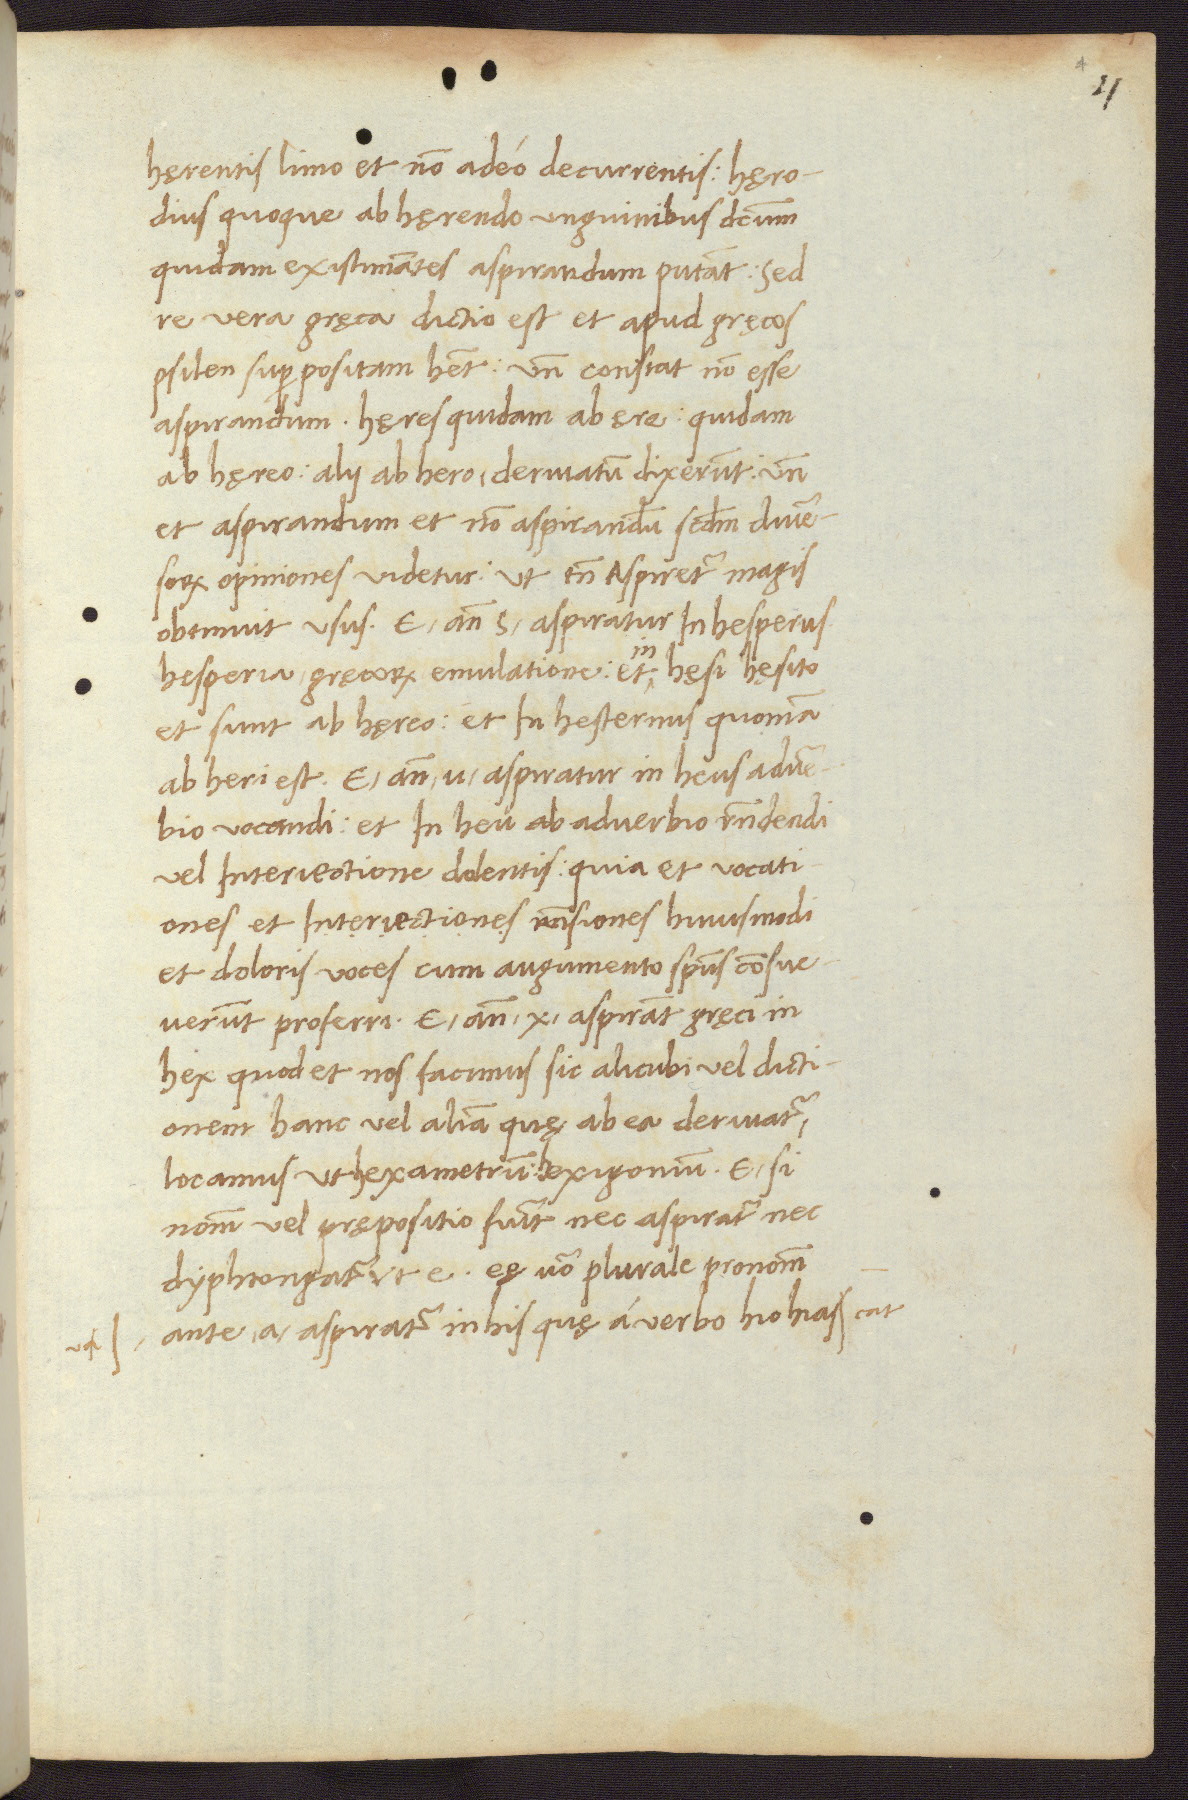 4
4
hęrentis limo et nõ adeó decurrentis: hęro-
dius quoque ab hęrendo unguinibus dctũm
quidam existimãtes aspirandum putãt: Sed
re vera gręca dictio est et apud gręcos
psilen sup̱positam hẽt: uñ constat nõ esse
aspirandum. hęres quidam ab ęre: quidam
ab hęreo: alij ab hero, deriuatũ dixerũt: uñ
et aspirandum et nõ aspirandũ scdm̃ diuẽ-
soꝝ opiniones videtur: ut tñ Aspiret᷑ magis
obtinuit usus. E, añ S, aspiratur In hesperus
hesperia, gręcoꝝ emulatione: et in hęsi hęsito
et sunt ab hęreo: et In hesternus quoniã
ab heri est. E, añ, u, aspiratur in heus aduẽ-
bio vocandi: et In heu ab aduerbio rñdendi
vel Interiectione dolentis: quia et vocati-
ones et Interiectiones rñsiones huiusmodi
et doloris voces cum augumento spũs cõsue-
uerũt proferri. E, añ, x, aspirãt gręci in
hex quod et nos facimus sic alicubi vel dicti-
onem hanc vel aliã quę ab ea deriuat᷑,
locamus ut hexametrũ: hexigoniũ. E, si
nom̃ vel prępositio fuit̃ nec aspirat᷑ nec
dyphtongat᷑ ut e. eę uõ plurale pronom̃
ante, a, aspiratur᷑ in his quę á verbo hio hias cat